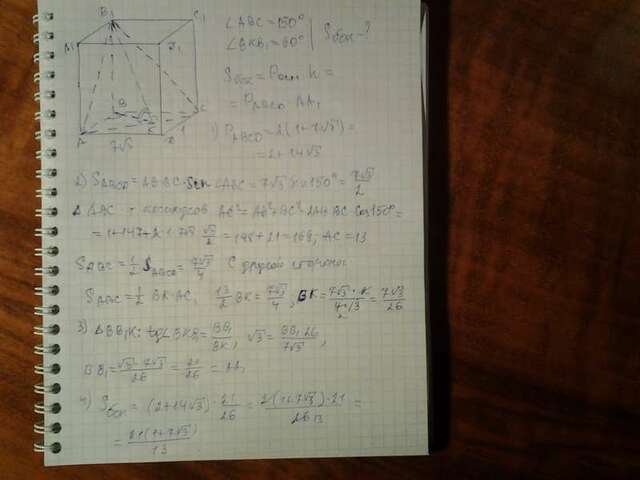 B₁ C₁
M D₁
B C
A K D
7√3 1
∠ABC = 150°
∠BKB₁ = 60° | Sбок - ?
Sбок = Pосн h =
= PABCD AA₁
1) PABCD = 2(1+7√3) =
= 2+14√3
2) SABCD = AB·BC·sin∠ABC = 7√3 sin150° = 7√3/2
Δ ABC т. косинусов AC² = AB²+BC²-2AB·BC·cos150° =
= 1+147+2·1·7√3 √3/2 = 148+21 = 169, AC = 13
SABC = 1/2 SABCD = 7√3/4 С другой стороны
SABC = 1/2 BK·AC, 13/2 BK = 7√3/4, BK = 7√3·2/4·13 = 7√3/26
3) ΔBB₁K: tg∠BKB₁ = BB₁/BK, √3 = BB₁·26/7√3,
BB₁ = √3·7√3/26 = 21/26 = AA₁
4) Sбок = (2+14√3)·21/26 = 2(1+7√3)·21/26 13 =
= 21(1+7√3)/13